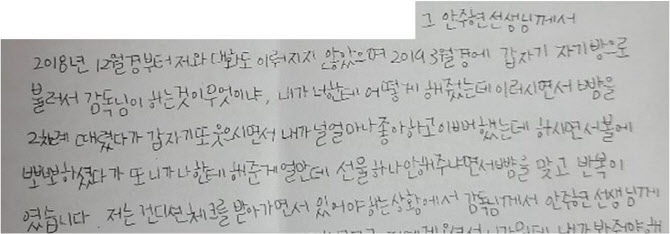 그 안주현선생님께서
2018년 12월경부터 저와 대화도 이뤄지지 않았으며 2019 3월경에 갑자기 자기방으로
불러서 감독님이 하는것이 무엇이냐, 내가 너한테 어떻게 해줬는데 이러시면서 뺨을
2차례 때렸다가 갑자기 또 웃으시면서 내가 널 얼마나 좋아하고 이뻐했는데 하시면서 볼에
뽀뽀하셨다가 또 니가 나한테 해준게 얼만데 선물하나 안해주냐면서 뺨을 맞고 반복이
였습니다. 저는 컨디션체크를 받아가면서 있어야 하는 상황에서 감독님께서 안주현 선생님께